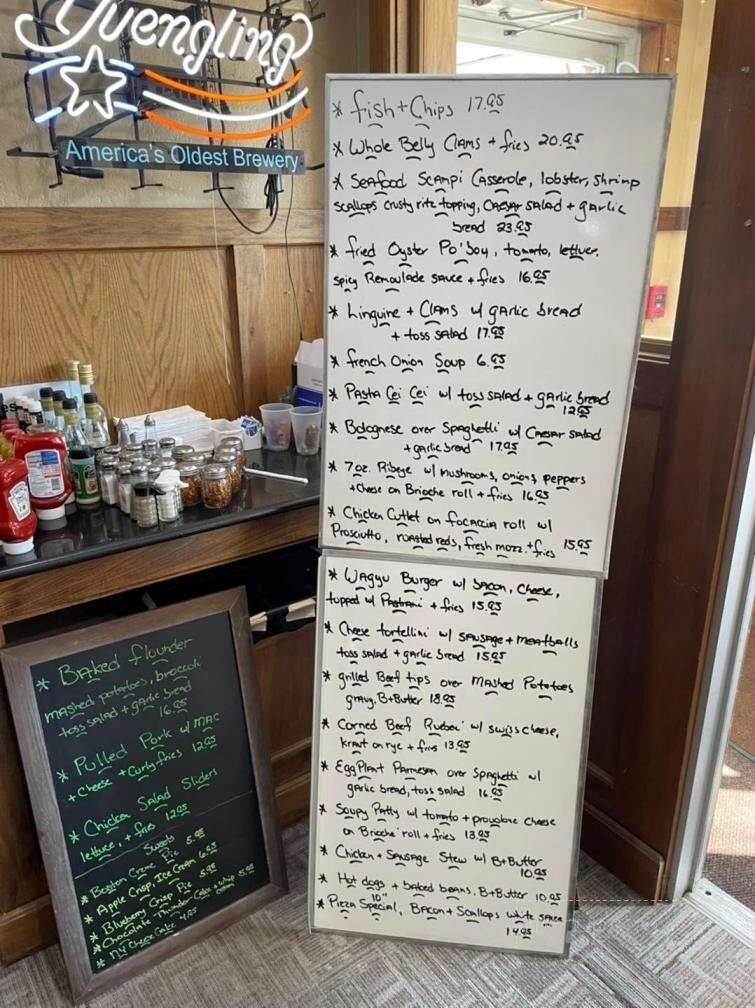 Yuengling
America's Oldest Brewery
* fish + Chips 17.95
* Whole Belly Clams + fries 20.95
* Seafood Scampi Casserole, lobster, shrimp
scallops crusty ritz topping, Caesar salad + garlic
bread 23.95
* fried Oyster Po'boy, tomato, lettuce.
spicy Remoulade sauce + fries 16.95
* Linguine + Clams w/ garlic bread
+ toss salad 17.95
* french Onion Soup 6.95
* Pasta Cei Cei w/ toss salad + garlic bread
12.95
* Bolognese over Spaghetti w/ Caesar salad
+ garlic bread 17.95
* 7oz. Ribeye w/ mushrooms, onions, peppers
+ cheese on Brioche roll + fries 16.95
* Chicken Cutlet on focaccia roll w/
Prosciutto, roasted reds, fresh mozz + fries 15.95
* Wagyu Burger w/ bacon, cheese,
topped w/ Pastrami + fries 15.95
* Cheese tortellini w/ sausage + meatballs
toss salad + garlic bread 15.95
* grilled Beef tips over mashed Potatoes
gravy, B+Butter 18.95
* Corned Beef Rueben w/ swiss cheese,
kraut on rye + fries 13.95
* EggPlant Parmesan over Spaghetti w/
garlic bread, toss salad 16.95
* Soupy Patty w/ tomato + provolone cheese
on Brioche roll + fries 13.95
* Chicken + Sausage Stew w/ B+Butter
10.95
* Hot dogs + baked beans, B+Butter 10.95
* 10" Pizza Special, Bacon + Scallops white sauce
14.95
* Baked flounder
mashed potatoes, broccoli
toss salad + garlic bread
16.95
* Pulled Pork w/ mac
+ cheese + Curly fries 12.95
* Chicken Salad Sliders
lettuce, + fries 12.95
Sweets
* Boston Creme Pie 5.95
* Apple Crisp, Ice Cream 6.95
* Blueberry Crisp Pie 5.95
* Chocolate Thunder Cake + whip cream 5.95
* NY Cheese Cake 4.95